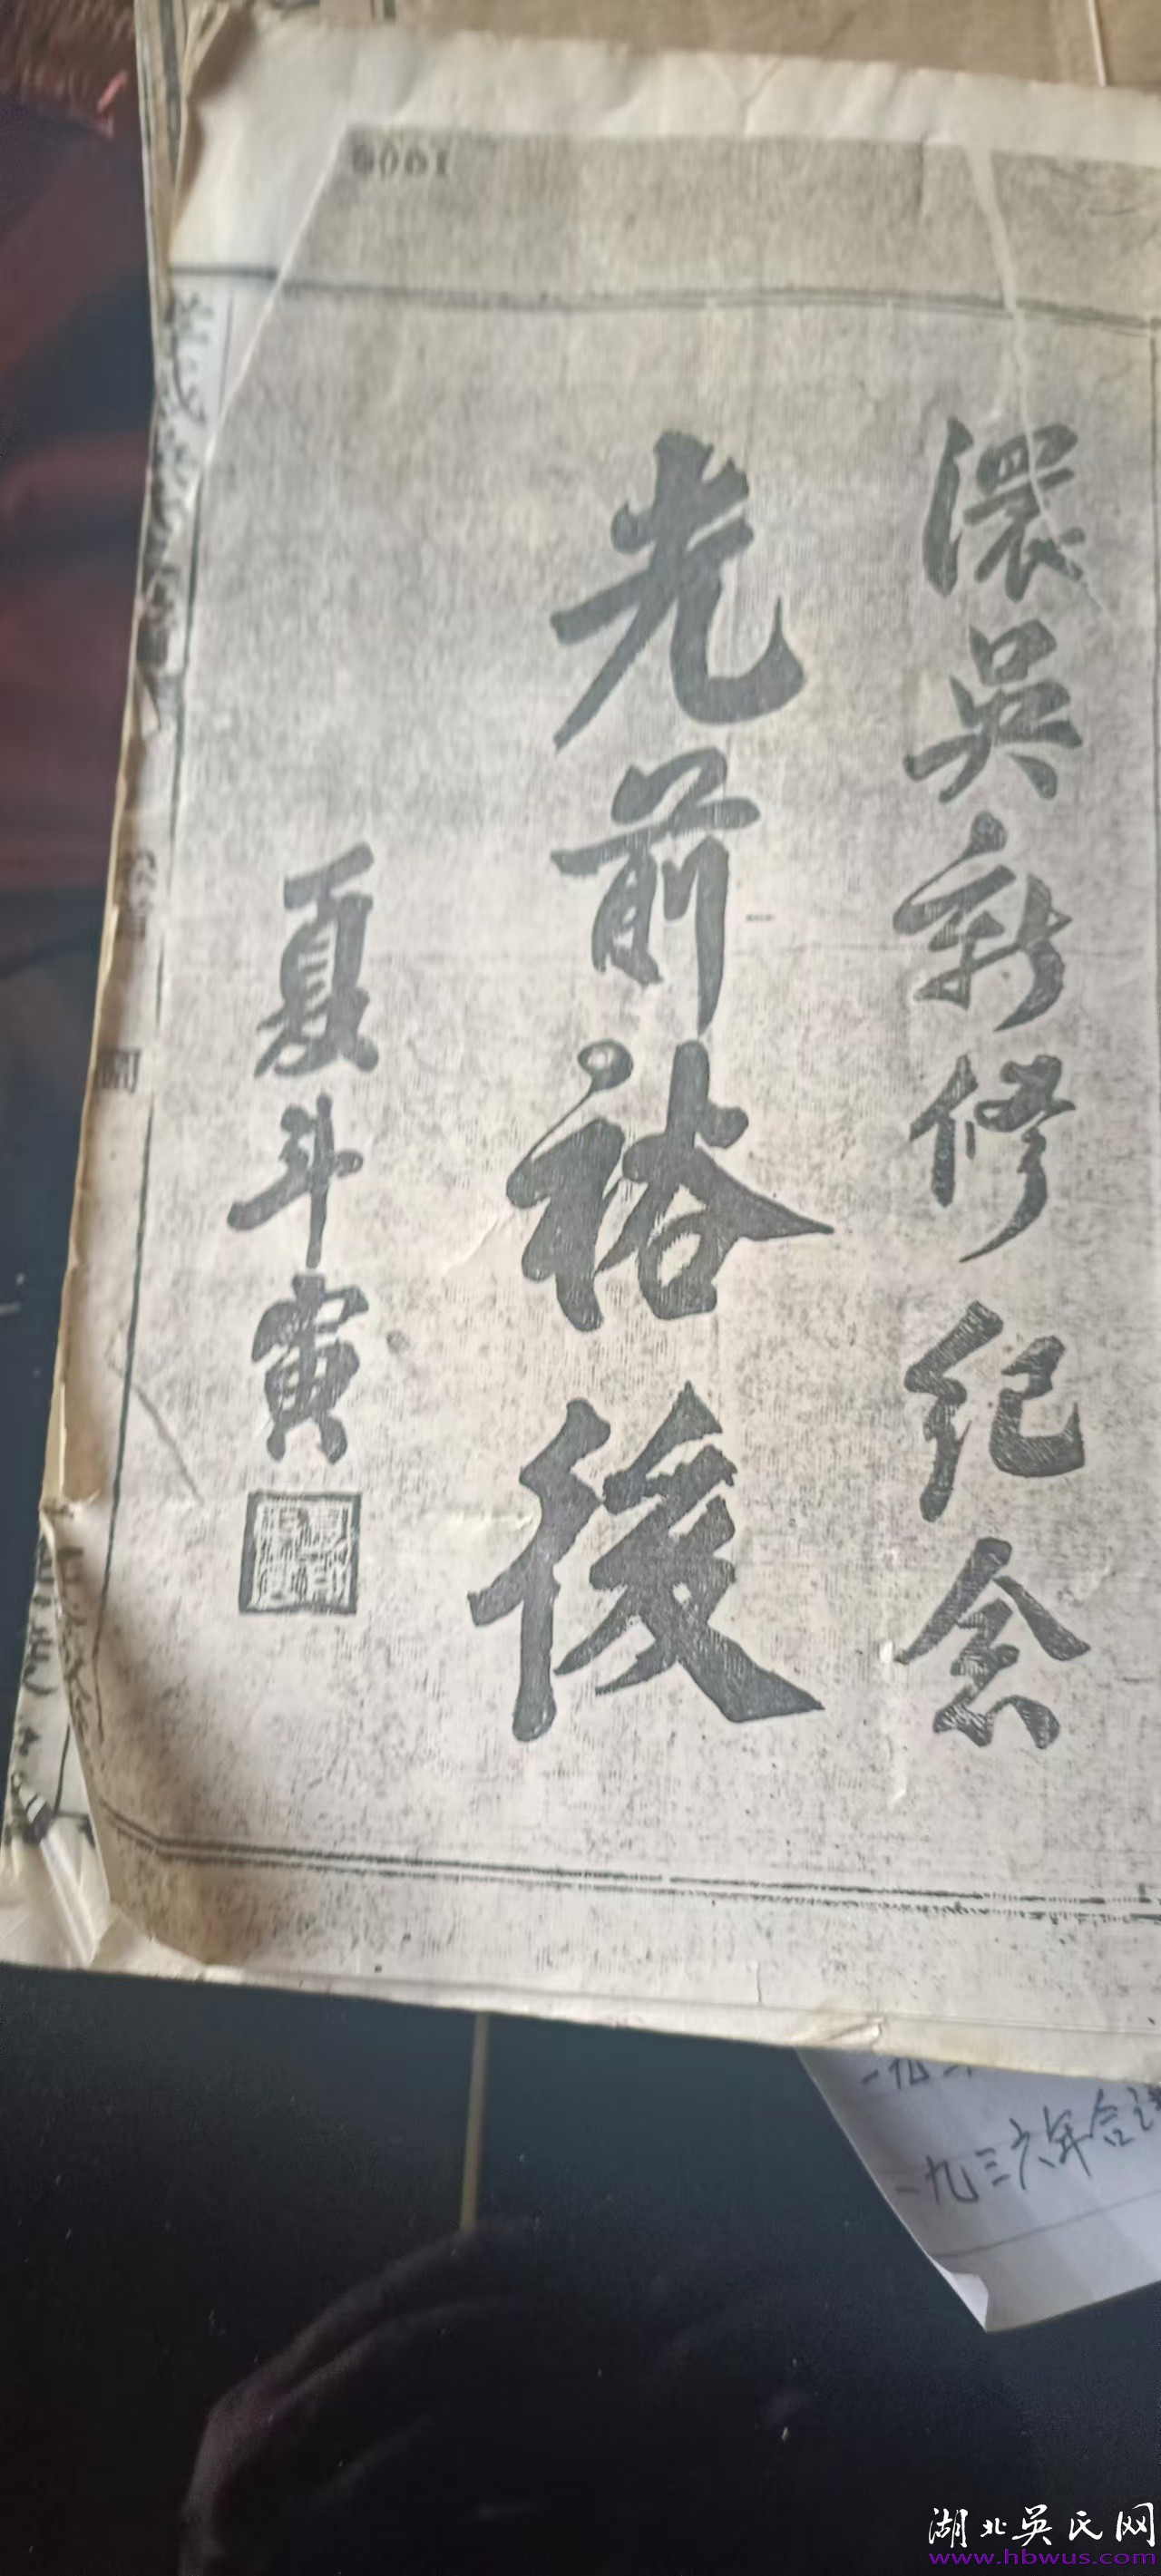 澴吳新修紀念
光前裕後
夏斗寅
一九三六年合
湖北吴氏网
www.hbwus.com